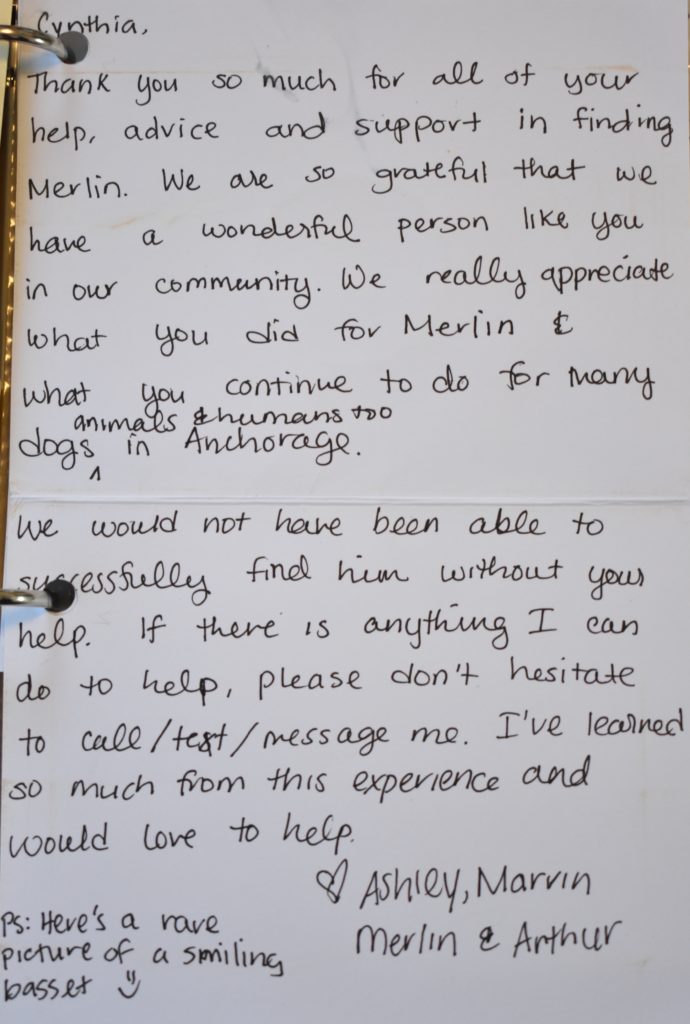 Cynthia,
Thank you so much for all of your
help, advice and support in finding
Merlin. We are so grateful that we
have a wonderful person like you
in our community. We really appreciate
what you did for Merlin &
what you continue to do for many
animals & humans too
dogs ^ in Anchorage.
We would not have been able to
successfully find him without your
help. If there is anything I can
do to help, please don't hesitate
to call/text/message me. I've learned
so much from this experience and
would love to help.
♡ Ashley, Marvin
Merlin & Arthur
Ps: Here's a rare
picture of a smiling
basset :)